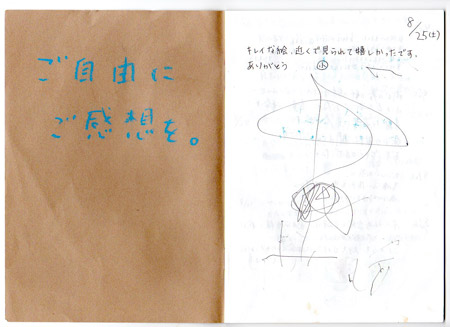 ご自由に
ご感想を。
8/25(土)
キレイな絵、近くで見られて嬉しかったです。
ありがとう